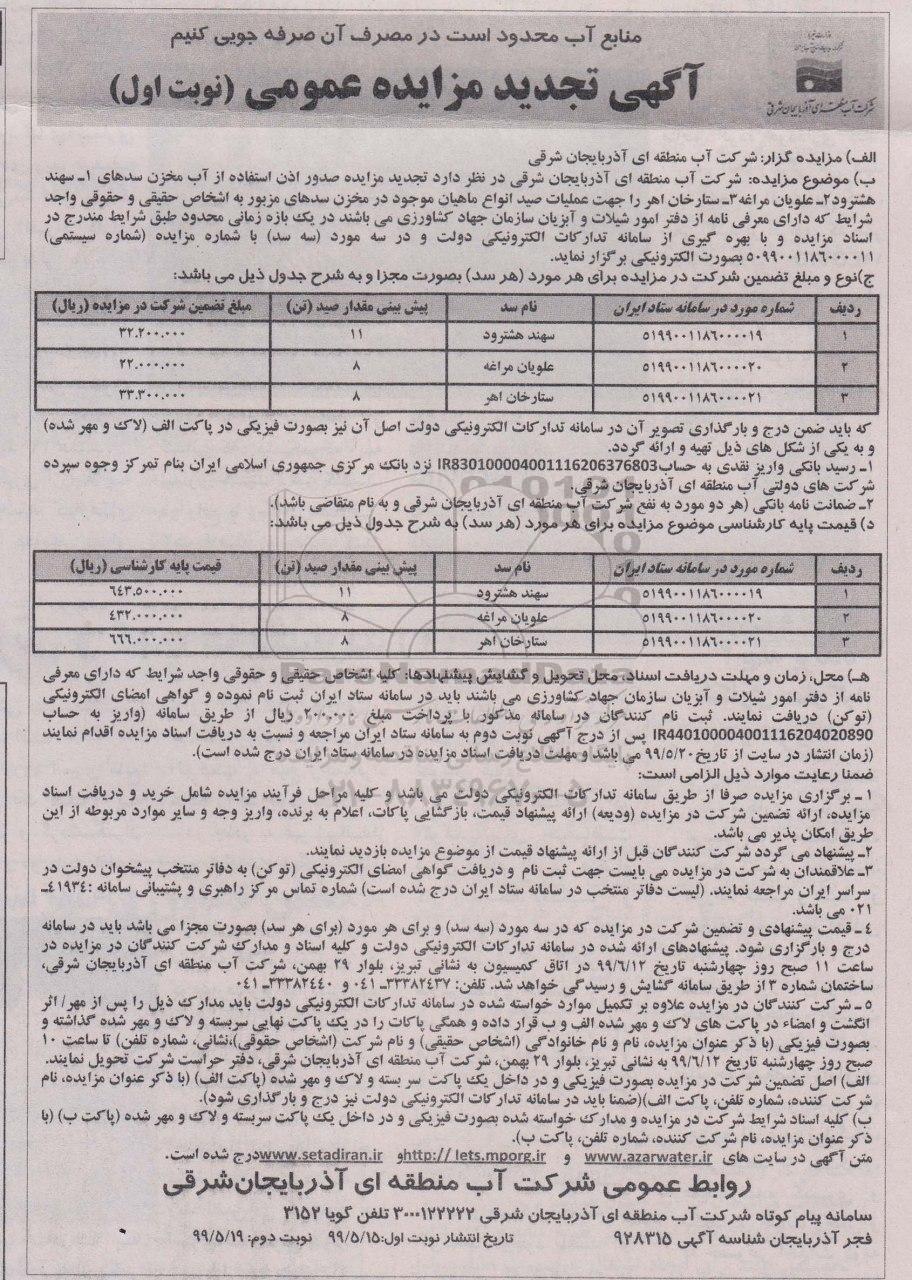 منابع آب محدود است در مصرف آن صرفه جویی کنیم
آگهی تجدید مزایده عمومی (نوبت اول)
شرکت آب منطقه ای آذربایجان شرقی
الف) مزایده گزار: شرکت آب منطقه ای آذربایجان شرقی
ب) موضوع مزایده: شرکت آب منطقه ای آذربایجان شرقی در نظر دارد تجدید مزایده صدور اذن استفاده از آب مخزن سدهای ۱ـ سهند
هشترود۲ـ علویان مراغه۳ـ ستارخان اهر را جهت عملیات صید انواع ماهیان موجود در مخزن سدهای مزبور به اشخاص حقیقی و حقوقی واجد
شرایط که دارای معرفی نامه از دفتر امور شیلات و آبزیان سازمان جهاد کشاورزی می باشند در یک بازه زمانی محدود طبق شرایط مندرج در
اسناد مزایده و با بهره گیری از سامانه تدارکات الکترونیکی دولت و در سه مورد (سه سد) با شماره مزایده (شماره سیستمی)
۵۰۹۹۰۰۱۱۸۶۰۰۰۰۱۱ بصورت الکترونیکی برگزار نماید.
ج)نوع و مبلغ تضمین شرکت در مزایده برای هر مورد (هر سد) بصورت مجزا و به شرح جدول ذیل می باشد:
ردیف شماره مورد در سامانه ستاد ایران نام سد پیش بینی مقدار صید (تن) مبلغ تضمین شرکت در مزایده (ریال)
۱ ۵۱۹۹۰۰۱۱۸۶۰۰۰۰۱۹ سهند هشترود ۱۱ ۳۲.۲۰۰.۰۰۰
۲ ۵۱۹۹۰۰۱۱۸۶۰۰۰۰۲۰ علویان مراغه ۸ ۲۲.۰۰۰.۰۰۰
۳ ۵۱۹۹۰۰۱۱۸۶۰۰۰۰۲۱ ستارخان اهر ۸ ۳۳.۳۰۰.۰۰۰
که باید ضمن درج و بارگذاری تصویر آن در سامانه تدارکات الکترونیکی دولت اصل آن نیز بصورت فیزیکی در پاکت الف (لاک و مهر شده)
و به یکی از شکل های ذیل تهیه و ارائه گردد.
۱ـ رسید بانکی واریز نقدی به حسابIR830100004001116206376803 نزد بانک مرکزی جمهوری اسلامی ایران بنام تمرکز وجوه سپرده
شرکت های دولتی آب منطقه ای آذربایجان شرقی.
۲ـ ضمانت نامه بانکی (هر دو مورد به نفع شرکت آب منطقه ای آذربایجان شرقی و به نام متقاضی باشد).
د) قیمت پایه کارشناسی موضوع مزایده برای هر مورد (هر سد) به شرح جدول ذیل می باشد:
ردیف شماره مورد در سامانه ستاد ایران نام سد پیش بینی مقدار صید (تن) قیمت پایه کارشناسی (ریال)
۱ ۵۱۹۹۰۰۱۱۸۶۰۰۰۰۱۹ سهند هشترود ۱۱ ۶۴۳.۵۰۰.۰۰۰
۲ ۵۱۹۹۰۰۱۱۸۶۰۰۰۰۲۰ علویان مراغه ۸ ۴۳۲.۰۰۰.۰۰۰
۳ ۵۱۹۹۰۰۱۱۸۶۰۰۰۰۲۱ ستارخان اهر ۸ ۶۶۶.۰۰۰.۰۰۰
هـ) محل، زمان و مهلت دریافت اسناد، محل تحویل و گشایش پیشنهادها: کلیه اشخاص حقیقی و حقوقی واجد شرایط که دارای معرفی
نامه از دفتر امور شیلات و آبزیان سازمان جهاد کشاورزی می باشند باید در سامانه ستاد ایران ثبت نام نموده و گواهی امضای الکترونیکی
(توکن) دریافت نمایند. ثبت نام کنندگان در سامانه مذکور با پرداخت مبلغ ریال از طریق سامانه (واریز به حساب
IR440100004001116204020890 پس از درج آگهی نوبت دوم به سامانه ستاد ایران مراجعه و نسبت به دریافت اسناد مزایده اقدام نمایند
(زمان انتشار در سایت از تاریخ ۹۹/۵/۲۰ می باشد و مهلت دریافت اسناد مزایده در سامانه ستاد ایران درج شده است).
ضمنا رعایت موارد ذیل الزامی است:
۱ ـ برگزاری مزایده صرفا از طریق سامانه تدارکات الکترونیکی دولت می باشد و کلیه مراحل فرآیند مزایده شامل خرید و دریافت اسناد
مزایده، ارائه تضمین شرکت در مزایده (ودیعه) ارائه پیشنهاد قیمت، بازگشایی پاکات، اعلام به برنده، واریز وجه و سایر موارد مربوطه از این
طریق امکان پذیر می باشد.
۲ـ پیشنهاد می گردد شرکت کنندگان قبل از ارائه پیشنهاد قیمت از موضوع مزایده بازدید نمایند.
۳ـ علاقمندان به شرکت در مزایده می بایست جهت ثبت نام و دریافت گواهی امضای الکترونیکی (توکن) به دفاتر منتخب پیشخوان دولت در
سراسر ایران مراجعه نمایند. (لیست دفاتر منتخب در سامانه ستاد ایران درج شده است) شماره تماس مرکز راهبری و پشتیبانی سامانه :۴۱۹۳۴ـ
۰۲۱ می باشد.
۴ ـ قیمت پیشنهادی و تضمین شرکت در مزایده که در سه مورد (سه سد) و برای هر مورد (برای هر سد) بصورت مجزا می باشد باید در سامانه
درج و بارگزاری شود. پیشنهادهای ارائه شده در سامانه تدارکات الکترونیکی دولت و کلیه اسناد و مدارک شرکت کنندگان در مزایده در
ساعت ۱۱ صبح روز چهارشنبه تاریخ ۹۹/۶/۱۲ در اتاق کمیسیون به نشانی تبریز، بلوار ۲۹ بهمن، شرکت آب منطقه ای آذربایجان شرقی،
ساختمان شماره ۳ از طریق سامانه گشایش و رسیدگی خواهد شد. تلفن: ۳۳۳۸۲۴۳۷ـ ۰۴۱ و ۳۳۳۸۲۴۴۰ـ ۰۴۱
۵ ـ شرکت کنندگان در مزایده علاوه بر تکمیل موارد خواسته شده در سامانه تدارکات الکترونیکی دولت باید مدارک ذیل را پس از مهر/ اثر
انگشت و امضاء در پاکت های لاک و مهر شده الف و ب قرار داده و همگی پاکات را در یک پاکت نهایی سربسته و لاک و مهر شده گذاشته و
بصورت فیزیکی (با ذکر عنوان مزایده، نام و نام خانوادگی (اشخاص حقیقی) و نام شرکت (اشخاص حقوقی)،نشانی، شماره تلفن) تا ساعت ۱۰
صبح روز چهارشنبه تاریخ ۹۹/۶/۱۲ به نشانی تبریز، بلوار ۲۹ بهمن، شرکت آب منطقه ای آذربایجان شرقی، دفتر حراست شرکت تحویل نمایند.
الف) اصل تضمین شرکت در مزایده بصورت فیزیکی و در داخل یک پاکت سر بسته و لاک و مهر شده (پاکت الف) (با ذکر عنوان مزایده، نام
شرکت کننده، شماره تلفن، پاکت الف)(ضمنا باید در سامانه تدارکات الکترونیکی دولت نیز درج و بارگذاری شود).
ب) کلیه اسناد شرایط شرکت در مزایده و مدارک خواسته شده بصورت فیزیکی و در داخل یک پاکت سربسته و لاک و مهر شده (پاکت ب) (با
ذکر عنوان مزایده، نام شرکت کننده، شماره تلفن، پاکت ب).
متن آگهی در سایت های www.azarwater.ir و http:// lets.mporg.irو www.setadiran.irدرج شده است.
روابط عمومی شرکت آب منطقه ای آذربایجان‌شرقی
سامانه پیام کوتاه شرکت آب منطقه ای آذربایجان شرقی ۳۰۰۰۱۲۲۲۲۲ تلفن گویا ۳۱۵۲
فجر آذربایجان شناسه آگهی ۹۲۸۳۱۵ تاریخ انتشار نوبت اول:۹۹/۵/۱۵ نوبت دوم: ۹۹/۵/۱۹